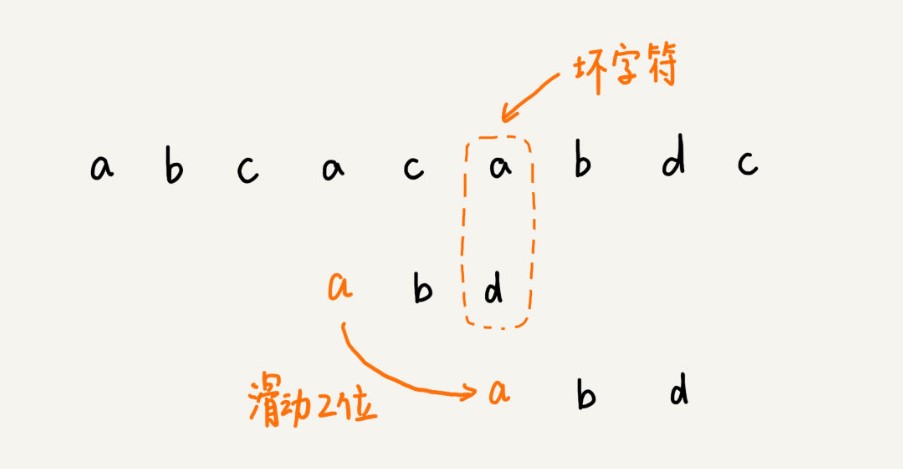 坏字符
a b c a c a b d c
a b d
滑动2位 a b d